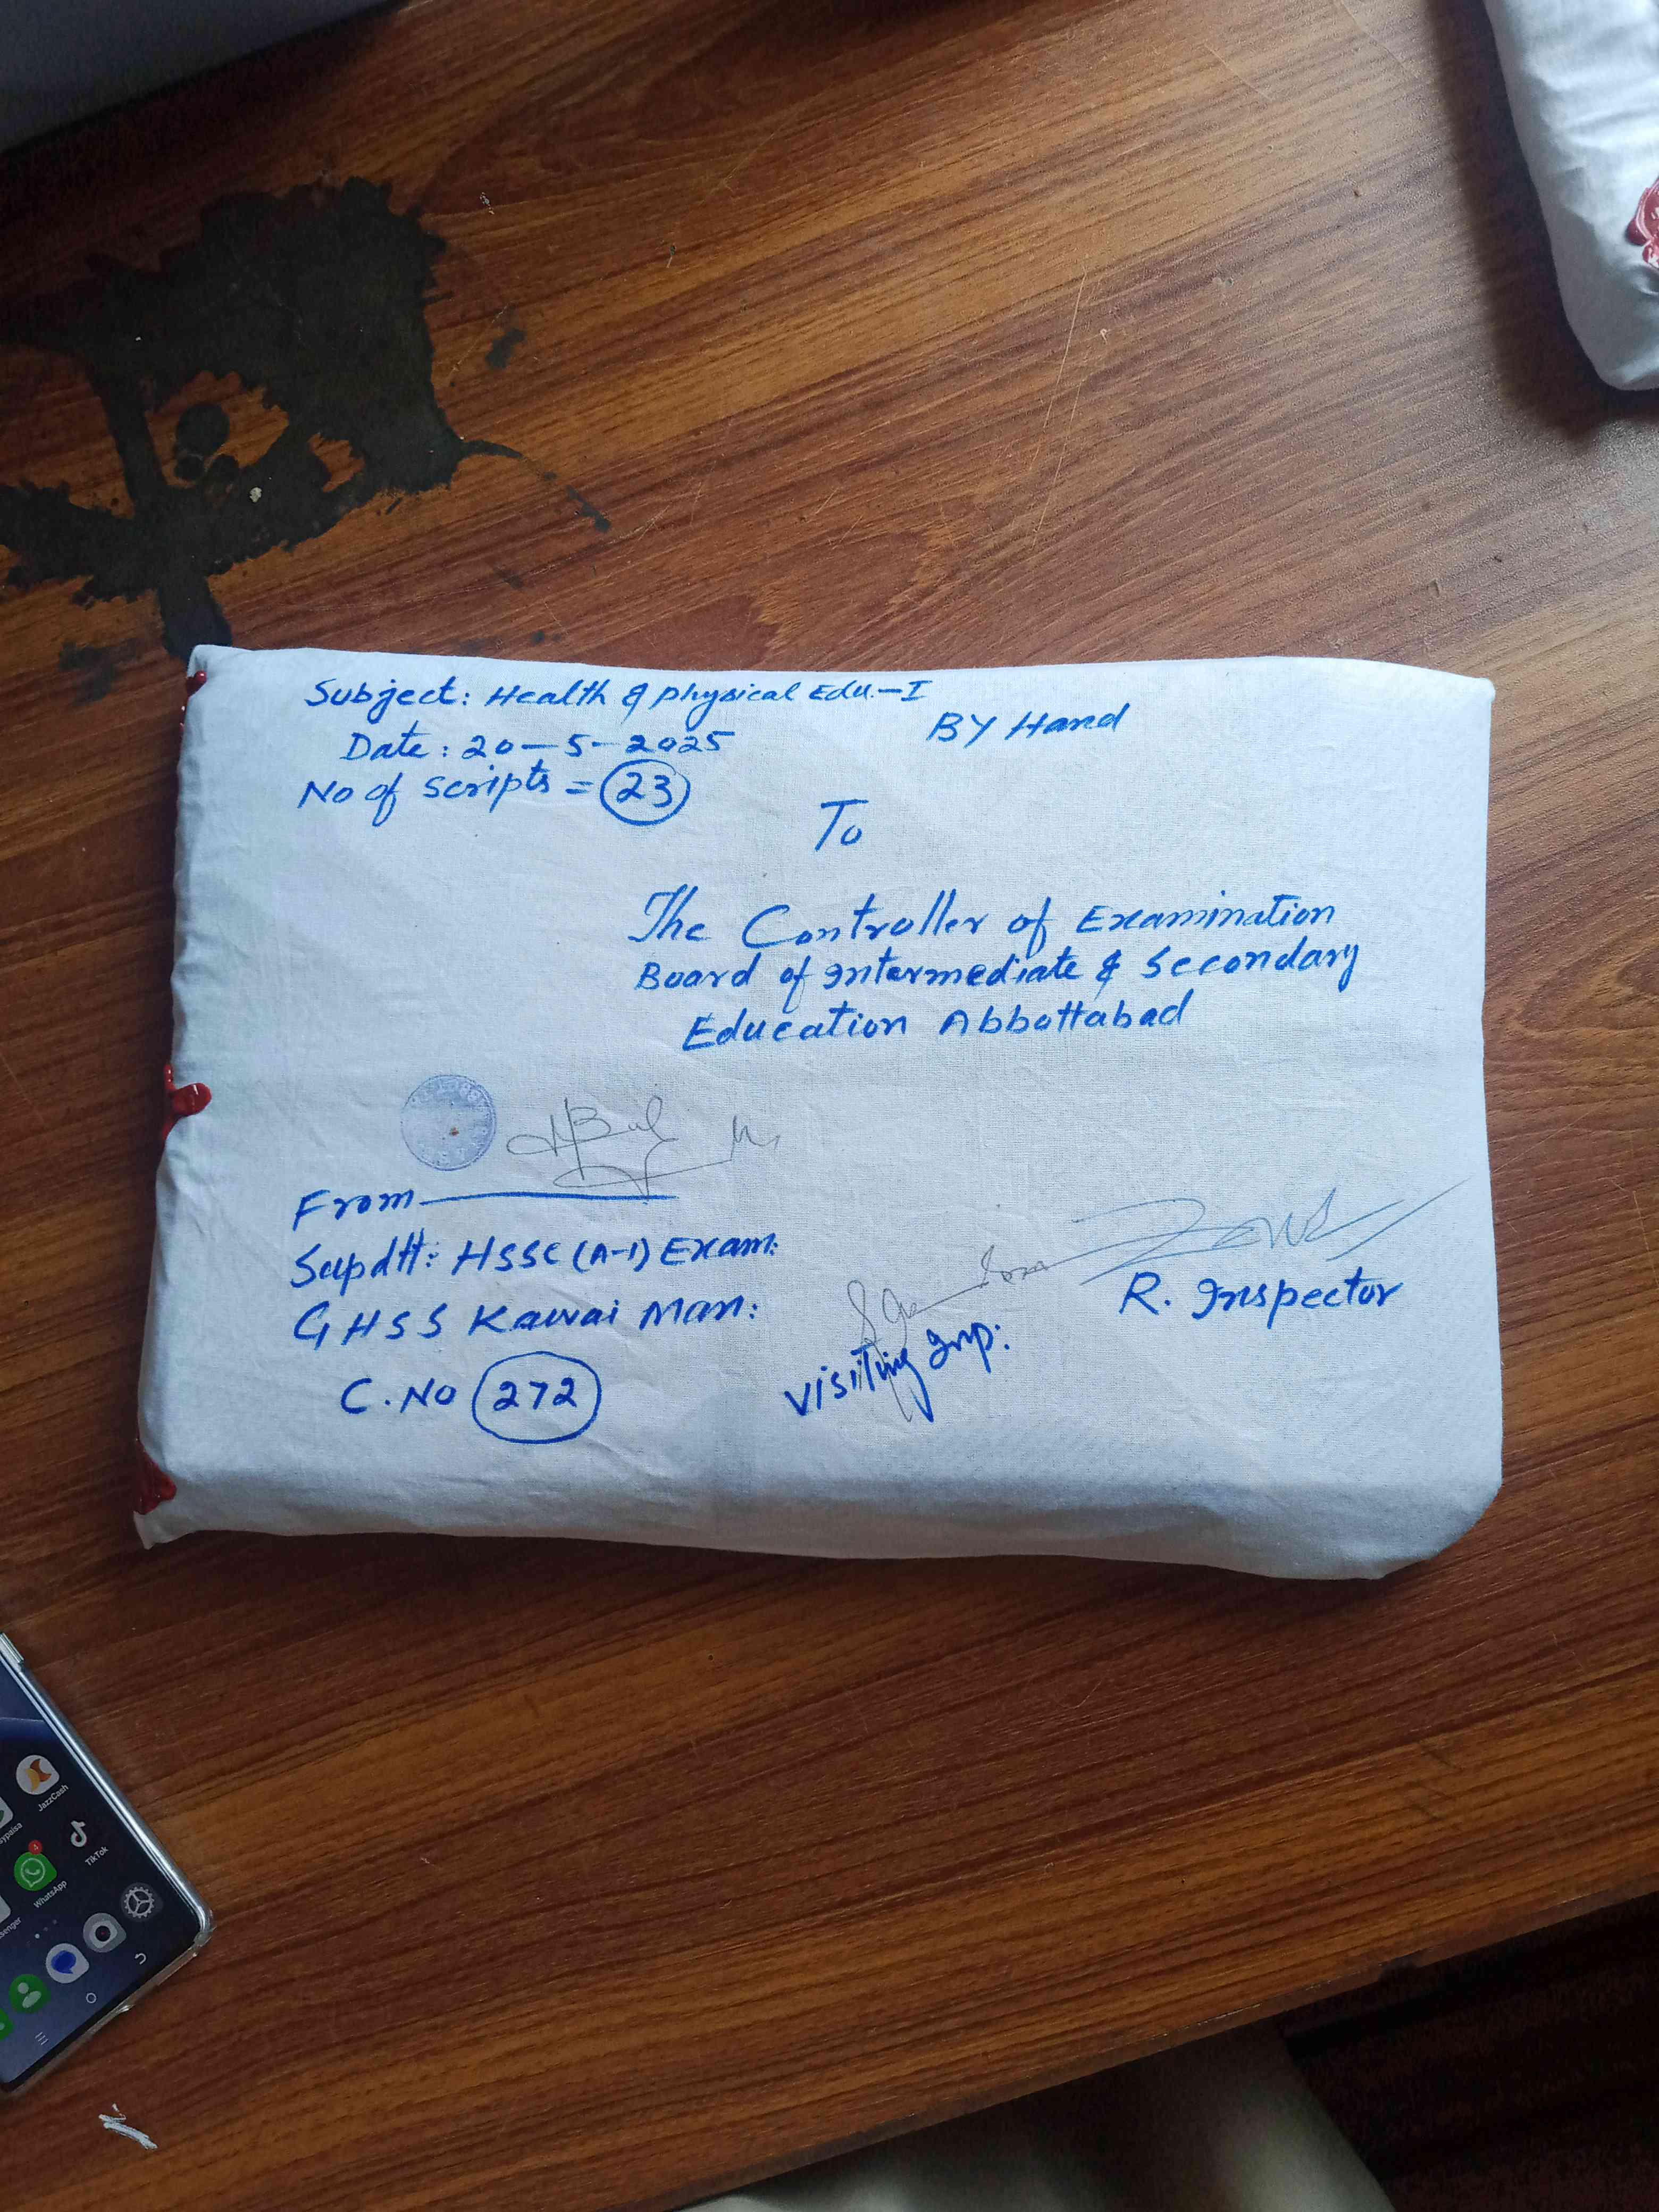 Subject: Health & physical Edu.-I
BY Hand
Date: 20-5-2025
No of scripts = 23
To
The Controller of Examination
Board of Intermediate & Secondary
Education Abbottabad
From
Supdtt: HSSC (A-I) Exam:
GHSS Kawai Man:
C.No 272
Visiting Insp:
R. Inspector
JazzCash
TikTok
WhatsApp